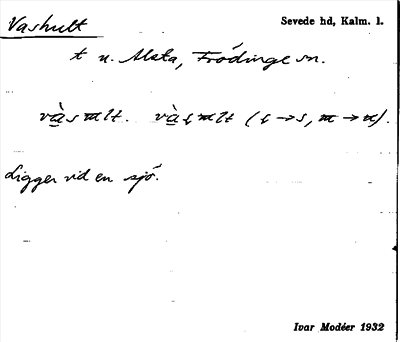 Vashult
Sevede hd, Kalm. l.
t u. Alsta, Frödinge sn.
Ligger vid en sjö.
Ivar Modéer 1932